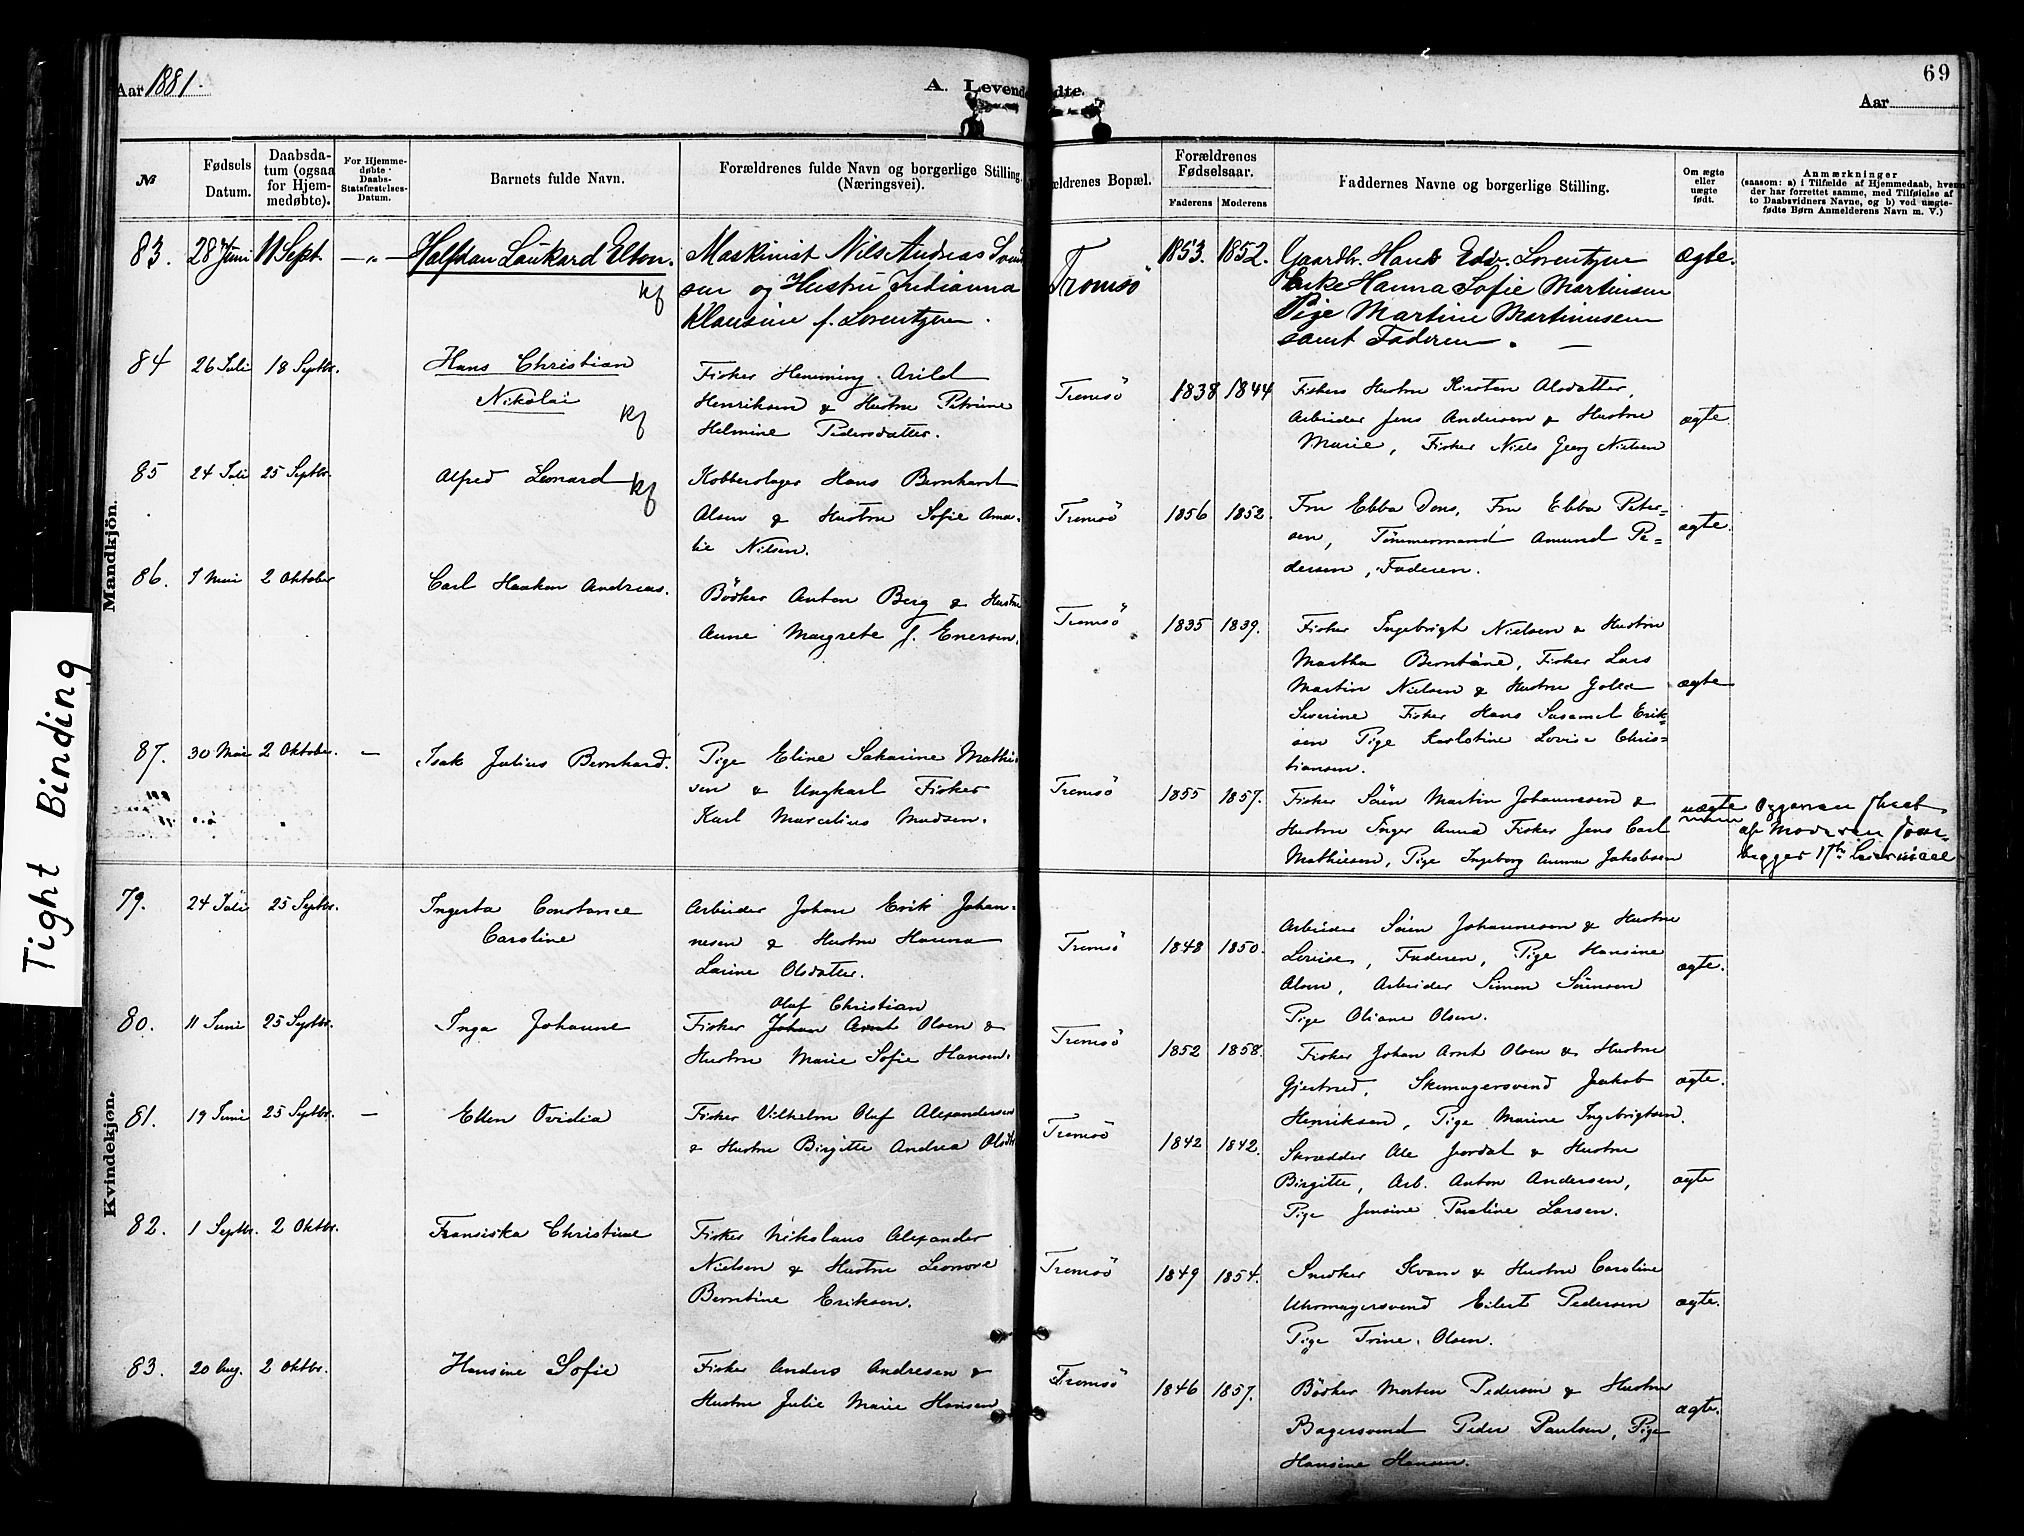 Aar 1881.
A. Levende
dte.
69
Aar
№
Fødsels Datum.
Daabsdatum (ogsaa for Hjemmedøbte).
For Hjemmedøbte Daabs-Statsfæstelses-Datum.
Barnets fulde Navn.
Forældrenes fulde Navn og borgerlige Stilling. (Næringsvei).
ældrenes Bopæl.
Forældrenes Fødselsaar.
Faderens
Moderens
Faddernes Navne og borgerlige Stilling.
Om ægte eller uægte født.
Anmærkninger
(saasom: a) i Tilfælde af Hjemmedaab, hvem
der har forrettet samme, med Tilføielse af
to Daabsvidners Navne, og b) ved uægte-
fødte Børn Anmelderens Navn m. V.)
Mandkjön.
83. 28 Juni 11 Sept. — „ —
Halfdan Laukard Elton.
kf
Maskinist Nils Andreas Svend
sen og Hustru Indianna
Klausine f. Lorentzen.
Tromsö
1853. 1852.
Gaardbr. Hans Edv. Lorentzen
Enke Hanna Sofie Martinsen
Pige Martine Martinusen
samt Faderen.
ægte.
84 26 Juli 18 Septbr.
Hans Christian
Nikolai
kf
Fisker Henning Arild
Henriksen & Hustru Petrine
Helmine Pedersdatter.
Tromsö
1838 1844
Fiskers Hustru Kirsten Olsdatter,
Arbeider Jens Andersen & Hustru
Marie, Fisker Niels Georg Nielsen
ægte
85 24 Juli 25 Septbr.
Alfred Leonard
kf
Kobberslager Hans Bernhard
Olsen & Hustru Sofie Ama-
lie Nilsen.
Tromsö
1856 1852.
Fru Ebba Dons, Fru Ebba Peter-
sen, Tömmermand Amund Pe-
dersen, Faderen.
ægte.
86. 2 Oktober
Carl Haakon Andreas.
Bödker Anton Berg & Hustru
Anne Margrete f. Enersen.
Tromsö
1835 1839.
Fisker Ingebrigt Nielsen & Hustru
Martha Berntine, Fisker Lars
Martin Nielsen & Hustru
Severine Fisker Hans Erik-
sen Pige Karlstine Lovise Chris-
tiansen.
ægte
87. 30 Mai 2 Oktober. —
Isak Julius Bernhard.
Pige Eline Sakarine Mathi-
sen & Ungkarl Fisker
Karl Marcelius Madsen.
Tromsö
1855 1857.
Fisker Sören Martin Johannesen &
Hustru Inger Anna Fisker Jens Carl
Mathiesen, Pige Ingeborg Anna Jakobsen
uægte
Opgaven
af Moderen
begges 1ste Leiermaal
Kvindekjøn.
79. 24 Juli 25 Septbr.
Ingerta Constance
Caroline
Arbeider Johan Erik Johan-
nesen & Hustru Hanna
Larine Olsdatter.
Tromsö
1848 1850.
Arbeider Sören Johannesen & Hustru
Lovise, Faderen, Pige Hansine
Olsen, Arbeider Simon Sörensen
Pige Oliane Olsen.
ægte.
80. 11 Juni 25 Septbr.
Inga Johanne
Olaf Christian
Fisker Johan Arnt Olsen &
Hustru Marie Sofie Hansen.
Tromsö
1852 1858.
Fisker Johan Arnt Olsen & Hustru
Gjertrud, Skomagersvend Jakob
Henriksen, Pige Marine Ingebrigtsen.
ægte.
81. 19 Juni 25 Septbr. —
Ellen Ovidia
Fisker Vilhelm Oluf Alexandersen
& Hustru Birgitte Andrea Olsdtr
Tromsö
1842 1842.
Skrædder Ole Jordal & Hustru
Birgitte, Arb. Anton Andersen,
Pige Jensine Pauline Larsen.
ægte
82. 1 Septbr. 2 Oktbr.
Fransiska Christine
Fisker Nikolaus Alexander
Nielsen & Hustru Leonore
Berntine Eriksen.
Tromsö
1849 1854.
Snedker Kvam & Hustru Caroline
Uhrmagersvend Eilert Pedersen
Pige Trine Olsen.
ægte.
83. 20 Aug. 2 Oktbr.
Hansine Sofie
Fisker Anders Andresen &
Hustru Julie Marie Hansen
Tromsö
1846 1857.
Bödker Morten Pedersen & Hustru
Bagersvend Peder Paulsen, Pige
Hansine Hansen.
ægte.
Tight Binding